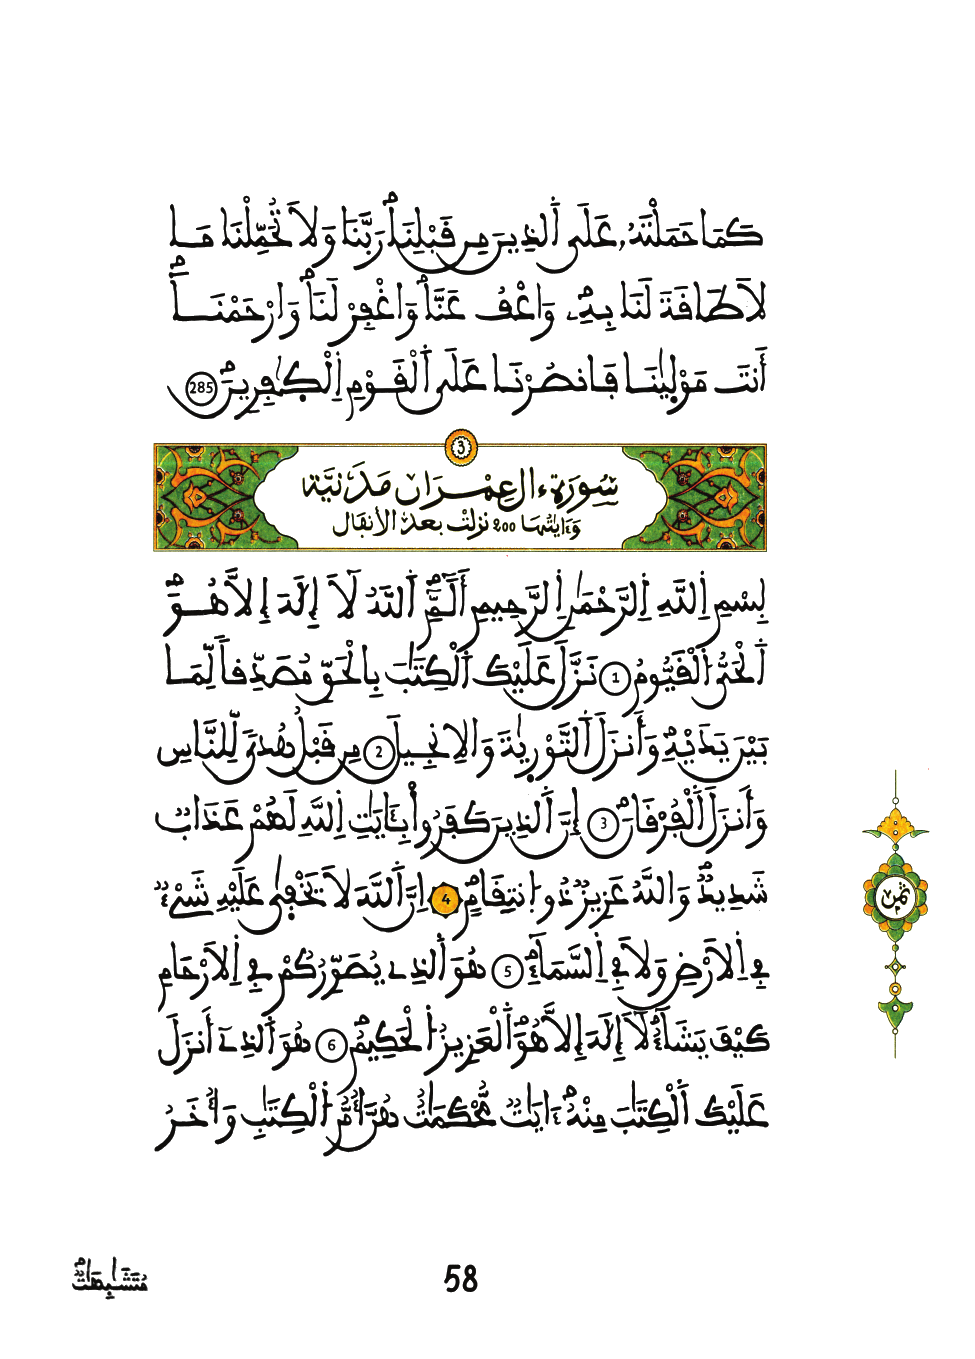 كَمَا حَمَلْتَهُۥ عَلَى اَلذِينَ مِن قَبْلِنَاۖ رَبَّنَا وَلَا تُحَمِّلْنَا مَا
لَا طَاقَةَ لَنَا بِهِۦۖ وَاعْفُ عَنَّاۖ وَاغْفِرْ لَنَاۖ وَارْحَمْنَاۖ
أَنتَ مَوْلَىٰنَا فَانصُرْنَا عَلَى اَلْقَوْمِ اِلْكٰفِرِينَۖ 285
3
سُورَةُ ءَالِ عِمْرَانَ مَدَنِيَّة
وَءَايَٰتُهَا 200 نزلتْ بعد الأنفال
بِسْمِ اِللَّهِ اِلرَّحْمَٰنِ اِلرَّحِيمِ أَلَٓمِّٓۖ اَللَّهُ لَآ إِلَٰهَ إِلَّا هُوَۖ
اَلْحَىُّ اُلْقَيُّومُ 1 نَزَّلَ عَلَيْكَ اَلْكِتَٰبَ بِالْحَقِّ مُصَدِّقاً لِّمَا
بَيْنَ يَدَيْهِۖ وَأَنزَلَ اَلتَّوْرَىٰةَ وَالِانجِيلَ 2 مِن قَبْلُ هُدىً لِّلنَّاسِ
وَأَنزَلَ اَلْفُرْقَانَۖ 3 إِنَّ اَلذِينَ كَفَرُواْ بِـَٔايَٰتِ اِللَّهِ لَهُمْ عَذَابٌ
شَدِيدٌۖ وَاللَّهُ عَزِيزٌ ذُو اُنتِقَامٍۖ 4 اِنَّ اَللَّهَ لَا يَخْفَىٰ عَلَيْهِ شَىْءٌ
فِى اِلَارْضِ وَلَا فِى اِلسَّمَآءِۖ 5 هُوَ اَلذِى يُصَوِّرُكُمْ فِى اِلَارْحَامِ
كَيْفَ يَشَآءُۖ لَآ إِلَٰهَ إِلَّا هُوَ اَلْعَزِيزُ اُلْحَكِيمُۖ 6 هُوَ اَلذِىٓ أَنزَلَ
عَلَيْكَ اَلْكِتَٰبَ مِنْهُ ءَايَٰتٌ مُّحْكَمَٰتٌ هُنَّ أُمُّ اُلْكِتَٰبِ وَأُخَرُ
ثمن
58
مُتَشَٰبِهَٰتٌۖ